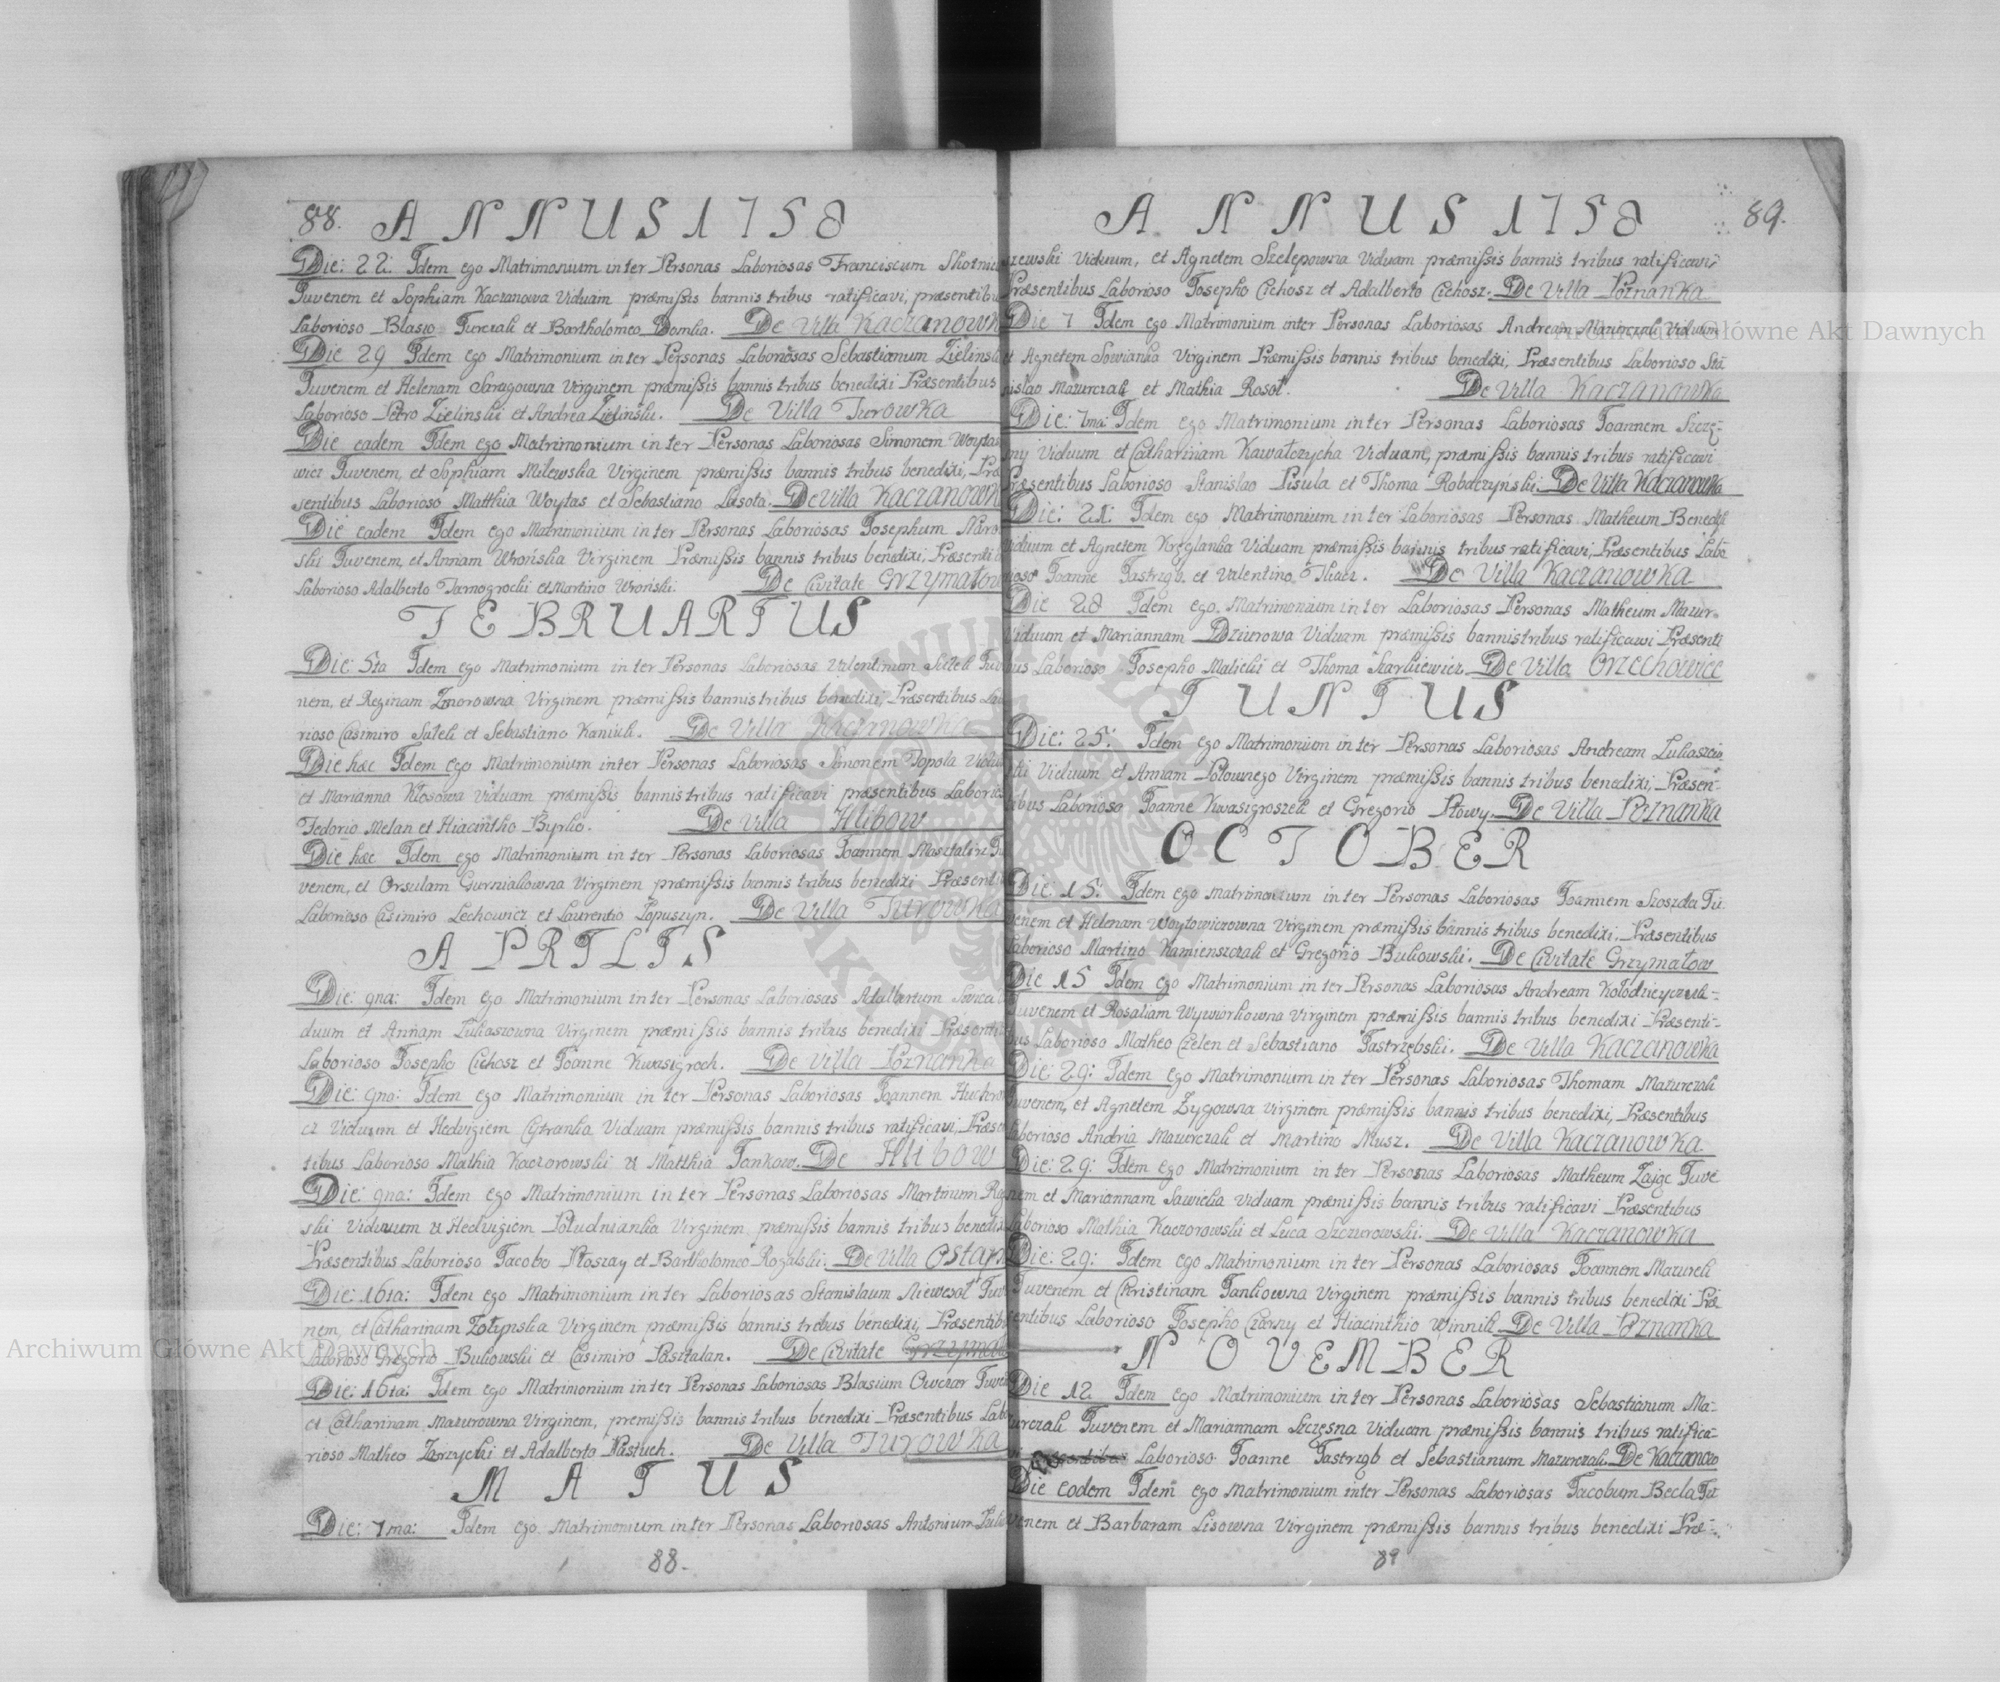 88. ANNUS 1758
Die: 22: Idem ego Matrimonium inter Personas Laboriosas Franciscum
Juvenem et Sophiam Kaczanowa Viduam præmissis bannis tribus ratificavi, præsentibus
Laborioso Blasio Turczak et Bartholomeo Domka. De Villa Kaczanowk
Die 29 Idem ego Matrimonium inter Personas Laboriosas Sebastianum Zielinski
Juvenem et Helenam Saragowna Virginem præmissis bannis tribus benedixi Præsentibus
Laborioso Petro Zielinski et Andrea Zielinski. De Villa Turowka
Die eadem Idem ego Matrimonium inter Personas Laboriosas Simonem Woytas
wicz Juvenem, et Sophiam Milewska Virginem præmissis bannis tribus benedixi, Præ
sentibus Laborioso Matthia Woytas et Sebastiano Lasota. De Villa Kaczanowk
Die eadem Idem ego Matrimonium inter Personas Laboriosas Josephum
ski Juvenem, et Annam Wrońska Virginem Præmissis bannis tribus benedixi. Præsenti
Laborioso Adalberto Tarnogrocki et Martino Wroński. De Civitate Grzymałow
FEBRUARIUS
Die: 5ta Idem ego Matrimonium inter Personas Laboriosas Valentinum Juve
nem, et Reginam Zmorowna Virginem præmissis bannis tribus benedixi, Præsentibus Labo
rioso Casimiro et Sebastiano Kaniuk. De Villa Kaczanowka
Die hæc Idem ego Matrimonium inter Personas Laboriosas Simonem Topola Viduum
et Marianna Kłosowa Viduam præmissis bannis tribus ratificavi præsentibus Laborioso
Fedorio Melan et Hiacintho Byrko. De Villa Hlibow
Die hæc Idem ego Matrimonium inter Personas Laboriosas Joannem Masztalirz Ju
venem, et Orsulam Gurniakowna Virginem præmissis bannis tribus benedixi Præsenti
Laborioso Casimiro Lechowicz et Laurentio Łopuszyn. De Villa Turowka
APRILIS
Die: 9na: Idem ego Matrimonium inter Personas Laboriosas Adalbertum
duum et Annam Lukaszowna Virginem præmissis bannis tribus benedixi Præsenti
Laborioso Josepho Cichosz et Joanne Kwasigroch. De Villa Poznanka
Die: 9na: Idem ego Matrimonium inter Personas Laboriosas Joannem
cz Viduum et Hedvigiem Cytranka Viduam præmissis bannis tribus ratificavi, Præsen
tibus Laborioso Mathia Kaczorowski & Matthia Jankow. De Hlibow
Die: 9na: Idem ego Matrimonium inter Personas Laboriosas Martinum
ski Viduum & Hedvigiem Południanka Virginem præmissis bannis tribus benedixi
Præsentibus Laborioso Jacobo Ptaszay et Bartholomeo Rogalski. De Villa Ostap
Die: 16ta: Idem ego Matrimonium inter Laboriosas Stanislaum Niewesoł Juve
nem, et Catharinam Zołynska Virginem præmissis bannis tribus benedixi, Præsentib
Laborioso Gregorio Bukowski et Casimiro Pasztalan. De Civitate Grzymał
Die: 16ta: Idem ego Matrimonium inter Personas Laboriosas Blasium Owczar Juven
et Catharinam Mazurowna Virginem, premissis bannis tribus benedixi Præsentibus Labo
rioso Matheo Zarzycki et Adalberto Pastuch. De Villa Turowka
MAIUS
Die: 7ma: Idem ego Matrimonium inter Personas Laboriosas Antonium
88.
ANNUS 1758 89.
szewski Viduum, et Agnetem Szelepowna Viduam præmissis bannis tribus ratificavi
Præsentibus Laborioso Josepho Cichosz et Adalberto Cichosz. De Villa Poznanka
Die 7 Idem ego Matrimonium inter Personas Laboriosas Andream Mazurczak Viduum
et Agnetem Virginem Præmissis bannis tribus benedixi, Præsentibus Laborioso Sta
nislao Mazurczak et Mathia Rosoł. De Villa Kaczanowka
Die: 7ma: Idem ego Matrimonium inter Personas Laboriosas Joannem Szczę-
sny Viduum et Catharinam Kawałczycha Viduam, præmissis bannis tribus ratificavi
Præsentibus Laborioso Stanislao Pisula et Thoma Robaczynski. De Villa Kaczanowka
Die: 21: Idem ego Matrimonium inter Laboriosas Personas Matheum Benedyk
Viduum et Agnetem Krzglanka Viduam præmissis bannis tribus ratificavi, Præsentibus Labo
rioso Joanne Jastrząb, et Valentino Tkacz. De Villa Kaczanowka
Die 28 Idem ego Matrimonium inter Laboriosas Personas Matheum Mazur
Viduum et Mariannam Dziurowa Viduam præmissis bannis tribus ratificawi Præsenti
bus Laborioso Josepho Malicki et Thoma Szarkiewicz. De Villa Orzechowice
IUNIUS
Die: 25: Idem ego Matrimonium inter Personas Laboriosas Andream
Viduum et Annam Połownego Virginem præmissis bannis tribus benedixi, Præsen-
tibus Laborioso Joanne Kwasigroszek et Gregorio Płowy. De Villa Poznanka
OCTOBER
Die: 15: Idem ego Matrimonium inter Personas Laboriosas Joannem Szoszda Ju
venem et Helenam Woytowiczowna Virginem præmissis bannis tribus benedixi. Præsentibus
Laborioso Martino Kamienszczak et Gregorio Bukowski. De Civitate Grzymałow
Die 15 Idem ego Matrimonium inter Personas Laboriosas Andream Kołodzieyczuk-
Juvenem et Rosaliam Wywiorkowna Virginem præmissis bannis tribus benedixi Præsenti-
bus Laborioso Matheo Czelen et Sebastiano Jastrzębski. De Villa Kaczanowka
Die: 29: Idem ego Matrimonium inter Personas Laboriosas Thomam Mazurczak
Juvenem, et Agnetem Zygowna Virginem præmissis bannis tribus benedixi, Præsentibus
Laborioso Andria Mazurczak et Martino Musz. De Villa Kaczanowka
Die: 29: Idem ego Matrimonium inter Personas Laboriosas Matheum Zając Juve
nem et Mariannam Sawicka Viduam præmissis bannis tribus ratificavi Præsentibus
Laborioso Mathia Kaczorowski et Luca Szczurowski. De Villa Kaczanowka
Die: 29: Idem ego Matrimonium inter Personas Laboriosas Joannem Mazurek
Juvenem et Christinam Jankowna Virginem præmissis bannis tribus benedixi Præ
sentibus Laborioso Josepho Czarny et Hiacinthio Winnik. De Villa Poznanka
NOVEMBER
Die 12 Idem ego Matrimonium inter Personas Laboriosas Sebastianum Ma-
zurczak Juvenem et Mariannam Szczęsna Viduam præmissis bannis tribus ratifica-
vi Præsentibus Laborioso Joanne Jastrząb et Sebastianum Mazurczak. De Kaczanow
Die eodem Idem ego Matrimonium inter Personas Laboriosas Jacobum Becla Ju
venem et Barbaram Lisowna Virginem præmissis bannis tribus benedixi Præ-
89
Archiwum Główne Akt Dawnych
Archiwum Główne Akt Dawnych
ARCHIWUM GŁÓWNE AKT DAWNYCH